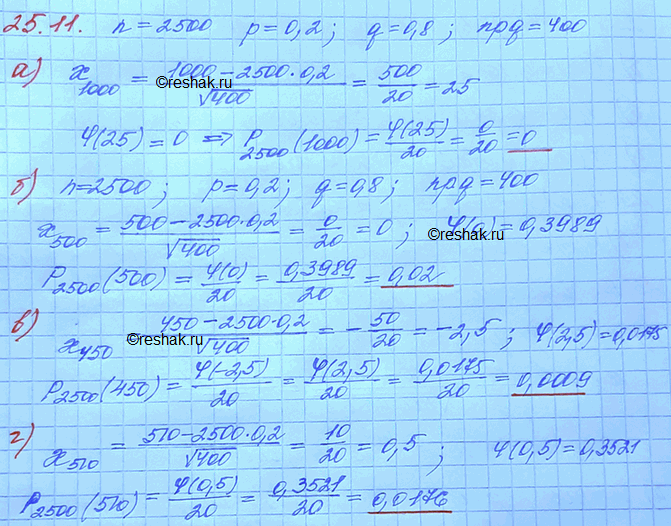 25.11. n = 2500 p = 0,2; q = 0,8; npq = 400
а) x₁₀₀₀ = (1000 − 2500·0,2)/√400 = 500/20 = 25
©reshak.ru
φ(25) = 0 ⇒ P₂₅₀₀(1000) = φ(25)/20 = 0/20 = 0
©reshak.ru
б) n = 2500; p = 0,2; q = 0,8; npq = 400
x₅₀₀ = (500 − 2500·0,2)/√400 = 0/20 = 0; φ(0) = 0,3989
©reshak.ru
P₂₅₀₀(500) = φ(0)/20 = 0,3989/20 = 0,02
в) x₄₅₀ = (450 − 2500·0,2)/√400 = −50/20 = −2,5; φ(2,5) = 0,0175
©reshak.ru
P₂₅₀₀(450) = φ(−2,5)/20 = φ(2,5)/20 = 0,0175/20 = 0,0009
г) x₅₁₀ = (510 − 2500·0,2)/√400 = 10/20 = 0,5; φ(0,5) = 0,3521
P₂₅₀₀(510) = φ(0,5)/20 = 0,3521/20 = 0,0176